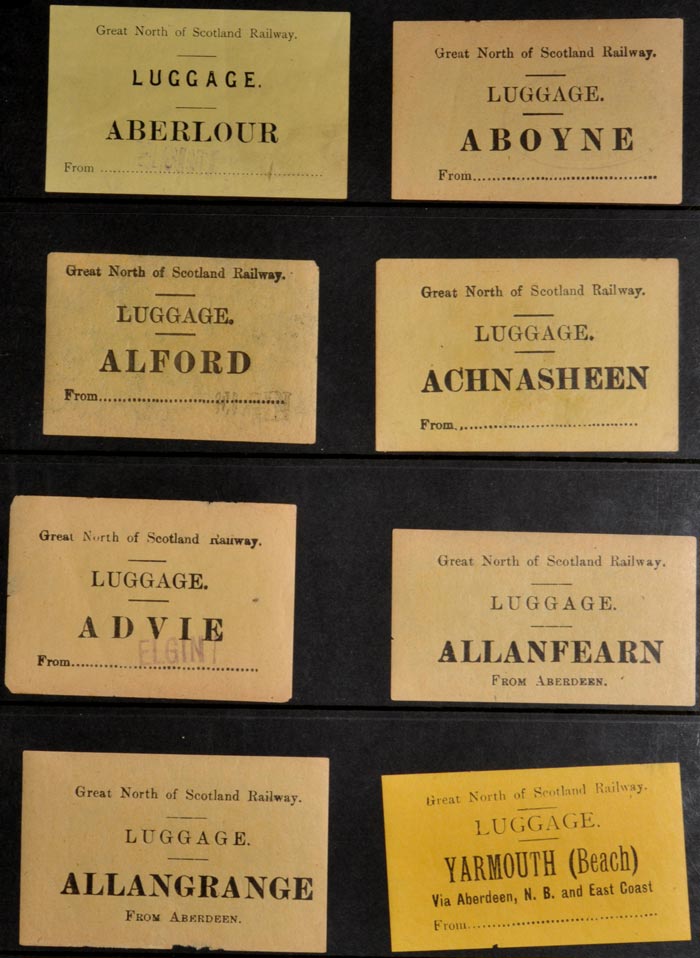 Great North of Scotland Railway.
LUGGAGE.
ABERLOUR
From
Great North of Scotland Railway.
LUGGAGE.
ABOYNE
From
Great North of Scotland Railway.
LUGGAGE.
ALFORD
From
Great North of Scotland Railway.
LUGGAGE.
ACHNASHEEN
From
Great North of Scotland Railway.
LUGGAGE.
ADVIE
From
ELGIN
Great North of Scotland Railway.
LUGGAGE.
ALLANFEARN
FROM ABERDEEN.
Great North of Scotland Railway.
LUGGAGE.
ALLANGRANGE
FROM ABERDEEN.
Great North of Scotland Railway.
LUGGAGE.
YARMOUTH (Beach)
Via Aberdeen, N. B. and East Coast
From